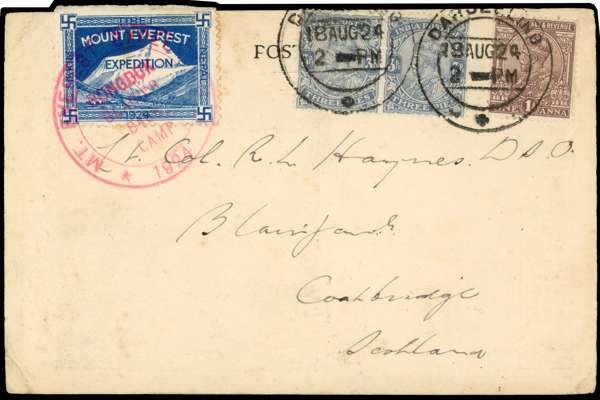 MOUNT EVEREST
EXPEDITION
1924
NEPAL
MT. EVEREST
RONGBUK
BASE
CAMP
1924
POST
DARJEELING
18 AUG 24
2 - PM
THREE PIES
THREE PIES
DARJEELING
18 AUG 24
2 - PM
& REVENUE
1 ANNA
Lt. Col. R. L. Haynes, D.S.O.
Coatbridge
Scotland